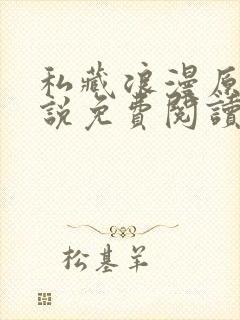 私藏浪漫原
說免費閱讀
松基羊